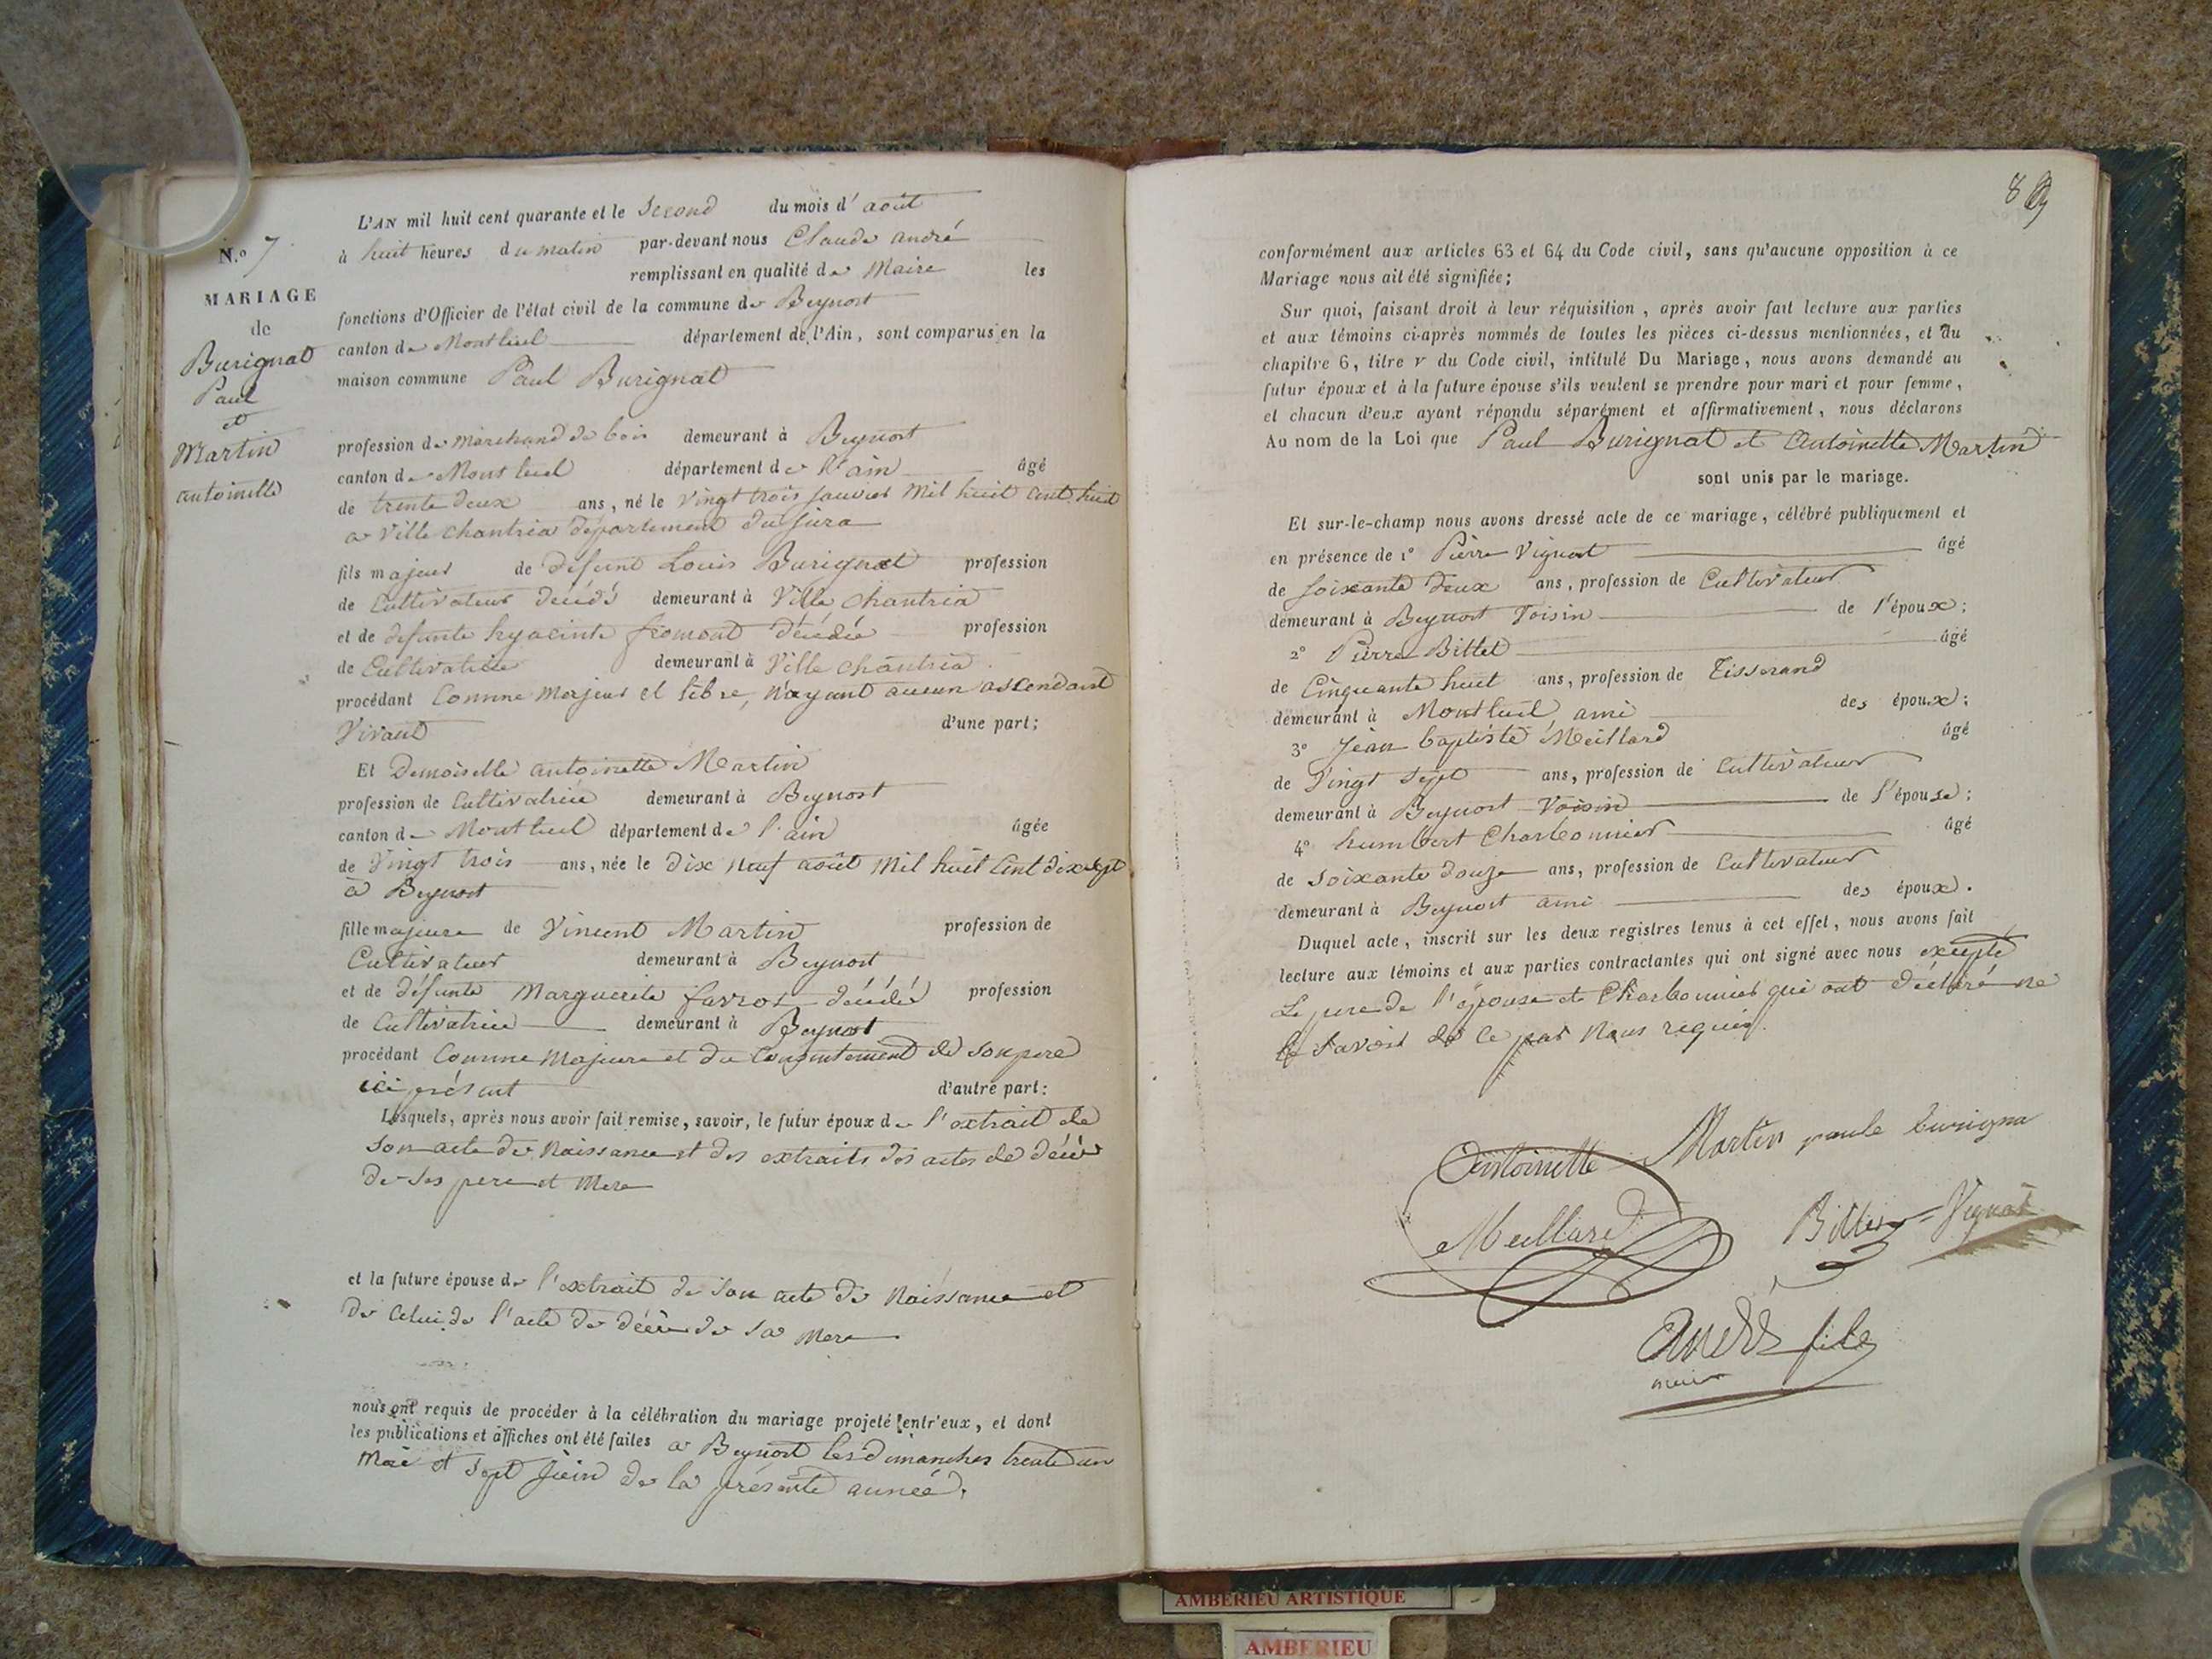 N.o 7
MARIAGE
de
Burignat
Paul
et
Martin
antoinette
L'AN mil huit cent quarante et le Second du mois d'août
à huit heures du matin par-devant nous Claude andré
remplissant en qualité de Maire les
fonctions d'Officier de l'état civil de la commune de Beynost
canton de Montluel département de l'Ain, sont comparus en la
maison commune Paul Burignat
profession de Marchand de bois demeurant à Beynost
canton de Montluel département de l'ain âgé
de trente deux ans, né le vingt trois janvier mil huit cent huit
a Ville chantria département du jura
fils majeur de défunt Louis Burignat profession
de Cultivateur décédé demeurant à Ville chantria
et de defunte hyacinte fromont décédée profession
de Cultivatrice demeurant à Ville chantria
procédant Comme Majeur et libre, n'ayant aucun ascendant
Vivant d'une part;
Et Demoiselle antoinette Martin
profession de Cultivatrice demeurant à Beynost
canton de Montluel département de l'ain âgée
de Vingt trois ans, née le dix neuf août mil huit cent dix sept
à Beynost
fille majeure de Vincent Martin profession de
Cultivateur demeurant à Beynost
et de défunte Marguerite farrot décédée profession
de Cultivatrice demeurant à Beynost
procédant Comme Majeure et du Consentement de son pere
ici présent d'autre part:
Lesquels, après nous avoir fait remise, savoir, le futur époux de l'extrait de
son acte de Naissance et des extraits des actes de décès
de ses pere et Mere
et la future épouse de l'extrait de son acte de Naissance et
de Celui de l'acte de décès de sa Mere
nous ont requis de procéder à la célébration du mariage projeté entr'eux, et dont
les publications et affiches ont été faites a Beynost les dimanches trente un
Mai et sept juin de la présente année.
8
conformément aux articles 63 et 64 du Code civil, sans qu'aucune opposition à ce
Mariage nous ait été signifiée;
Sur quoi, faisant droit à leur réquisition, après avoir fait lecture aux parties
et aux témoins ci-après nommés de toutes les pièces ci-dessus mentionnées, et du
chapitre 6, titre v du Code civil, intitulé Du Mariage, nous avons demandé au
futur époux et à la future épouse s'ils veulent se prendre pour mari et pour femme,
et chacun d'eux ayant répondu séparément et affirmativement, nous déclarons
Au nom de la Loi que Paul Burignat et Antoinette Martin
sont unis par le mariage.
Et sur-le-champ nous avons dressé acte de ce mariage, célébré publiquement et
en présence de 1° Pierre Vignat âgé
de soixante deux ans, profession de Cultivateur
demeurant à Beynost Voisin de l'époux;
2° Pierre Bittet âgé
de Cinquante huit ans, profession de Tisserand
demeurant à Montluel, ami des époux;
3° Jean baptiste Meillard âgé
de Vingt sept ans, profession de Cultivateur
demeurant à Beynost Voisin de l'épouse;
4° humbert Charbonnier âgé
de soixante douze ans, profession de Cultivateur
demeurant à Beynost ami des époux.
Duquel acte, inscrit sur les deux registres tenus à cet effet, nous avons fait
lecture aux témoins et aux parties contractantes qui ont signé avec nous excepté
Le pere de l'épouse et Charbonnier qui ont déclaré ne
le savoir de ce par Nous requis.
Antoinette Martin paule burigna
Meillard Vignat
André fils
maire
AMBERIEU ARTISTIQUE
AMBERIEU